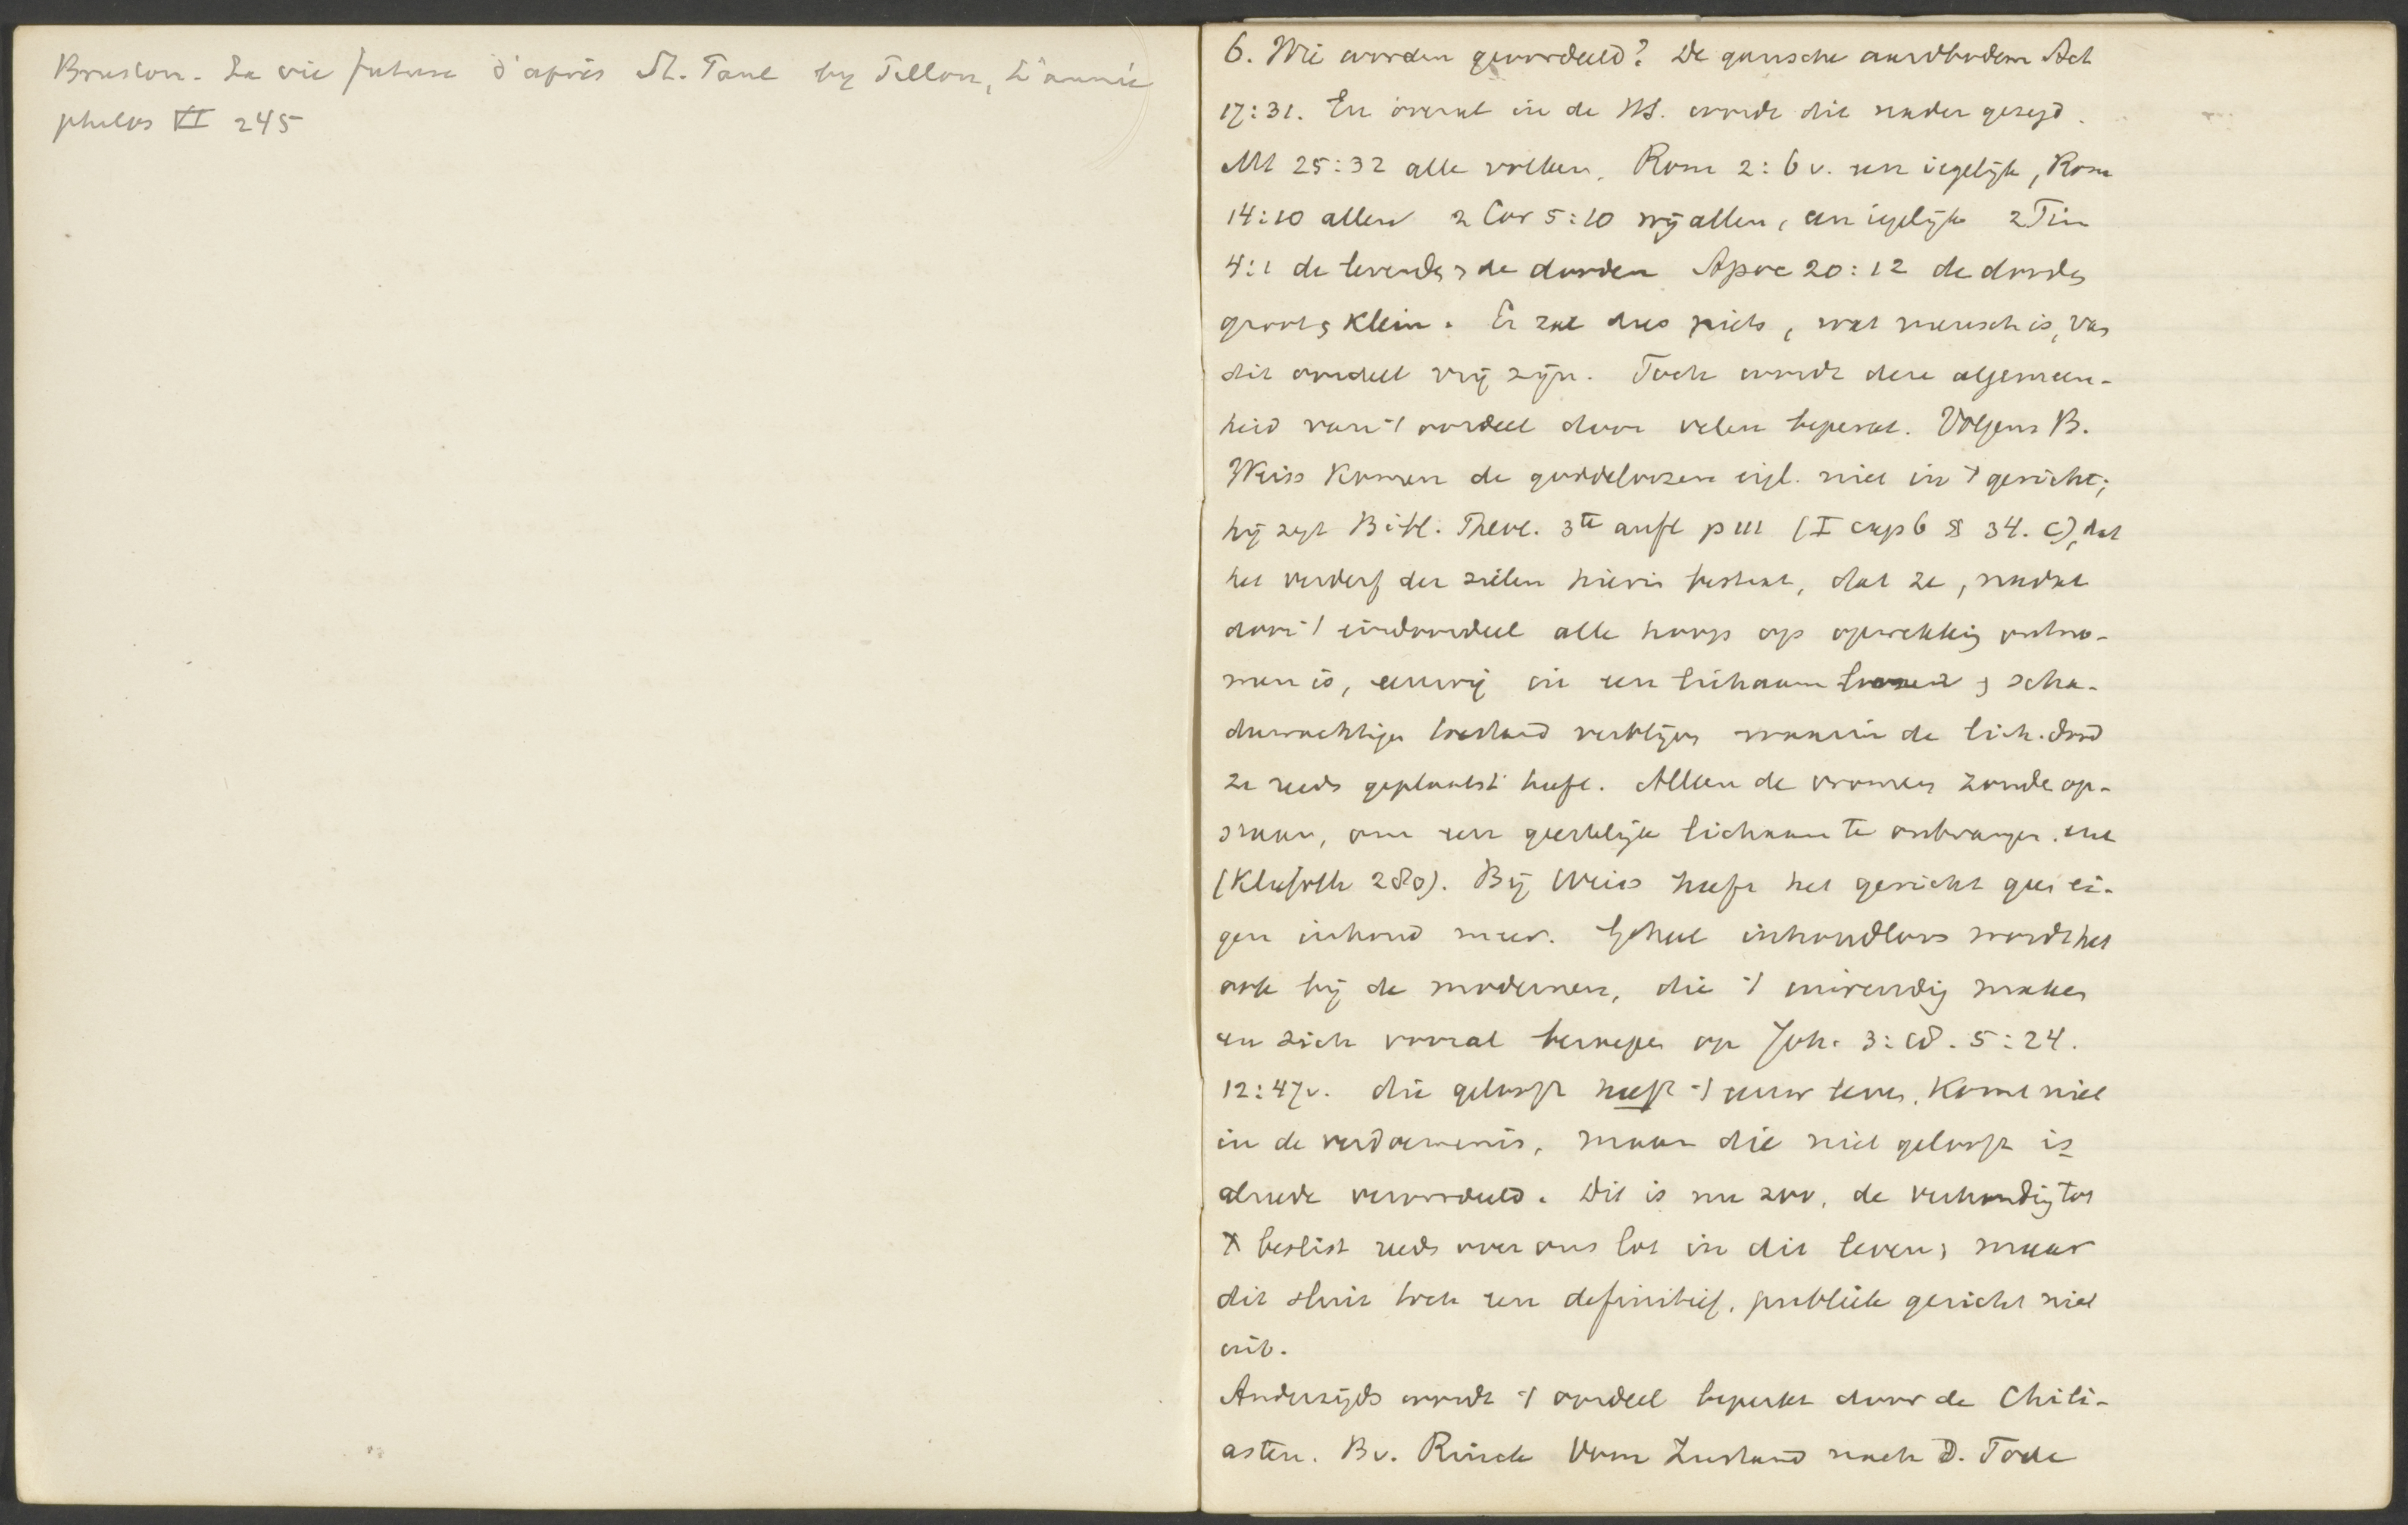 Bruston. La vie future d'après St. Paul by Pillon, L'année
philos VI 245
6. Wie worden geoordeeld? De gansche aardbodem Act
17:31. En overal in de HS. wordt dit nader gezegd.
Mt 25:32 alle volken, Rom 2:6v. een iegelijk, Rom
14:10 allen 2 Cor 5:10 wij allen, een iegelijk 2 Tim
4:1 de levenden en de dooden Apoc 20:12 de dooden
groot en klein. Er zal dus niets, wat mensch is, van
dit oordeel vrij zijn. Toch wordt deze algemeen-
heid van 't oordeel door velen beperkt. Volgens B.
Weiss komen de goddeloozen eigl. niet in 't gericht;
hij zegt Bibl. Theol. 3te aufl p 111 (I cap 6 § 34. c), dat
het verderf der zielen hierin bestaat, dat ze, nadat
door 't eindoordeel alle hoop op opwekking ontno-
men is, eeuwig in een lichaamloozen en scha-
duwachtigen toestand verblijven waarin de lich. dood
ze reeds geplaatst heeft. Alleen de vromen zonden op-
staan, om een geestelijk lichaam te ontvangen. enz
(Kliefoth 280). Bij Weiss heeft het gericht geen ei-
gen inhoud meer. Geheel inhoudloos wordt het
ook bij de modernen, die 't inwendig maken
en zich vooral beroepen op Joh. 3:18. 5:24.
12:47v. die gelooft heeft 't eeuw leven, komt niet
in de verdoemenis, maar die niet gelooft is
alreede veroordeeld. Dit is nu zoo, de verhouding tot
X beslist reeds over ons lot in dit leven; maar
dit sluit toch een definitief, publiek gericht niet
uit.
Anderzijds wordt 't oordeel beperkt door de Chili-
asten. Bv. Rinck Vom Zustand nach d. Tode